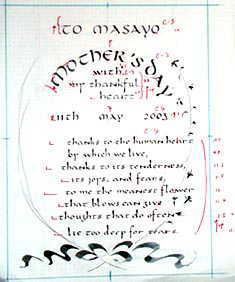 TO MASAYO
MOTHER'S DAY
with
my thankful
heart
11th May 2003
thanks to the human heart
by which we live,
thanks to its tenderness,
its joys, and fears,
to me the meanest flower
that blows can give
thoughts that do often
lie too deep for tears.